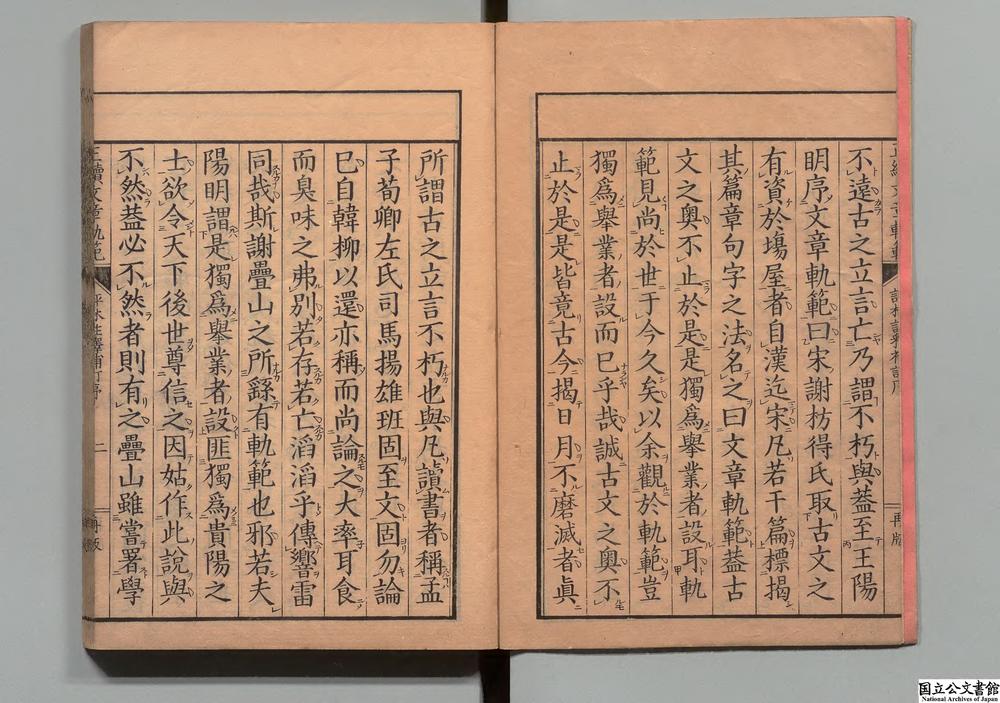 不遠古之立言亡乃謂不朽與葢至王陽
明序文章軌範曰宋謝枋得氏取古文之
有資於塲屋者自漢迄宋凡若干篇標揭
其篇章句字之法名之曰文章軌範葢古
文之奧不止於是是獨爲舉業者設耳軌
範見尚於世于今久矣以余觀於軌範豈
獨爲舉業者設而巳乎哉誠古文之奧不
止於是是皆竟古今揭日月不磨滅者眞
所謂古之立言不朽也與凡讀書者稱孟
子荀卿左氏司馬揚雄班固至文固勿論
巳自韓柳以還亦稱而尚論之大率耳食
而臭味之弗別若存若亡滔滔乎傳響雷
同哉斯謝疊山之所繇有軌範也邪若夫
陽明謂是獨爲舉業者設匪獨爲貴陽之
士欲令天下後世尊信之因姑作此說與
不然葢必不然者則有之疊山雖嘗署學
二
再版
国立公文書館
National Archives of Japan